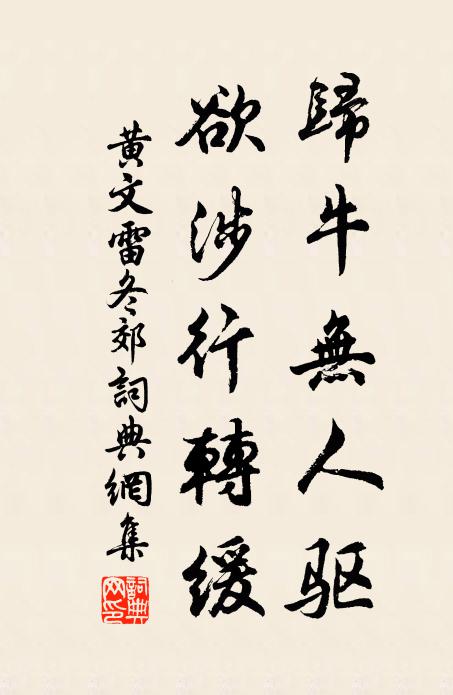 歸牛無人驱
欲涉行轉緩
黄文雷冬郊詞典網集
詞典网印